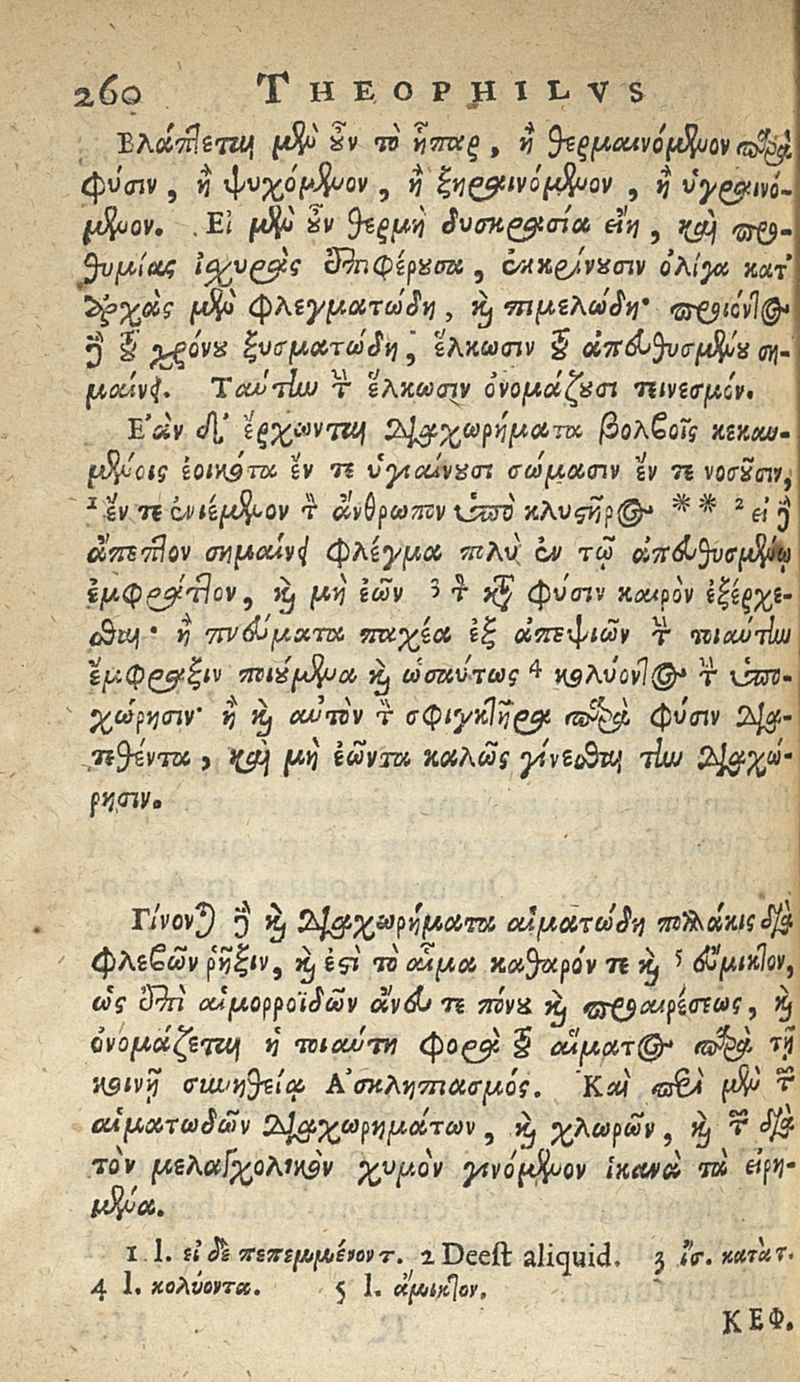 260 THEOPHILVS
Βλάπτεται μὲν οὖν τὸ ἧπαρ, ἢ θερμαινόμενον παρὰ
φύσιν, ἢ ψυχόμενον, ἢ ξηραινόμενον, ἢ ὑγραινό-
μενον. Εἰ μὲν οὖν θερμὴ δυσκρασία εἴη, καὶ προ-
θυμίας ἰσχυρὰς ἐπιφέρουσα, ἐκκρίνουσιν ὀλίγα κατ'
ἀρχὰς μὲν φλεγματώδη, καὶ πιμελώδη· προϊόντος
δὲ τοῦ χρόνου ξυσματώδη, ἕλκωσιν τοῦ ἀπευθυσμένου ση-
μαίνει. Ταύτην τὴν ἕλκωσιν ὀνομάζουσι τεινεσμόν.
Ἐὰν δ' ἔρχωνται διαχωρήματα βολβοῖς κεκαυ-
μένοις ἐοικότα ἔν τε ὑγιαίνουσι σώμασιν ἔν τε νοσοῦσιν,
1 ἔν τε ἐνιέμενον τὸν ἄνθρωπον ὑπὸ κλυστῆρος ** 2 εἰ δὲ
ἄπεπτον σημαίνει φλέγμα πολὺ ἐν τῷ ἀπευθυσμένῳ
ἐμφράττον, καὶ μὴ ἐῶν 3 τὸν κατὰ φύσιν καιρὸν ἐξέρχε-
σθαι· ἢ πνεύματα παχέα ἐξ ἀπεψιῶν τὴν τοιαύτην
ἔμφραξιν ποιούμενα καὶ ὡσαύτως 4 κολύοντος τὴν ὑπο-
χώρησιν· ἢ καὶ αὐτὸν τὸν σφιγκτῆρα παρὰ φύσιν δια-
τεθέντα, καὶ μὴ ἐῶντα καλῶς γίνεσθαι τὴν διαχώ-
ρησιν.
Γίνονται δὲ καὶ διαχωρήματα αἱματώδη πολλάκις διὰ
φλεβῶν ῥῆξιν, καὶ ἐστὶ τὸ αἷμα καθαρόν τε καὶ 5 εὔμικτον,
ὡς ἐπὶ αἱμορροϊδῶν ἄνευ τε πόνου καὶ προαιρέσεως, καὶ
ὀνομάζεται ἡ τοιαύτη φορὰ τοῦ αἵματος παρὰ τῇ
κοινῇ συνηθείᾳ Ἀσκληπιασμός. Καὶ περὶ μὲν τῶν
αἱματωδῶν διαχωρημάτων, καὶ χλωρῶν, καὶ τῶν διὰ
τὸν μελαγχολικὸν χυμὸν γινόμενον ἱκανὰ τὰ εἰρη-
μένα.
1 l. εἰ δὲ πεπεμμένον τ. 2 Deest aliquid. 3 ἴσ. κατὰ τ.
4 l. κολύοντα. 5 l. ἄμικτον.
ΚΕΦ.